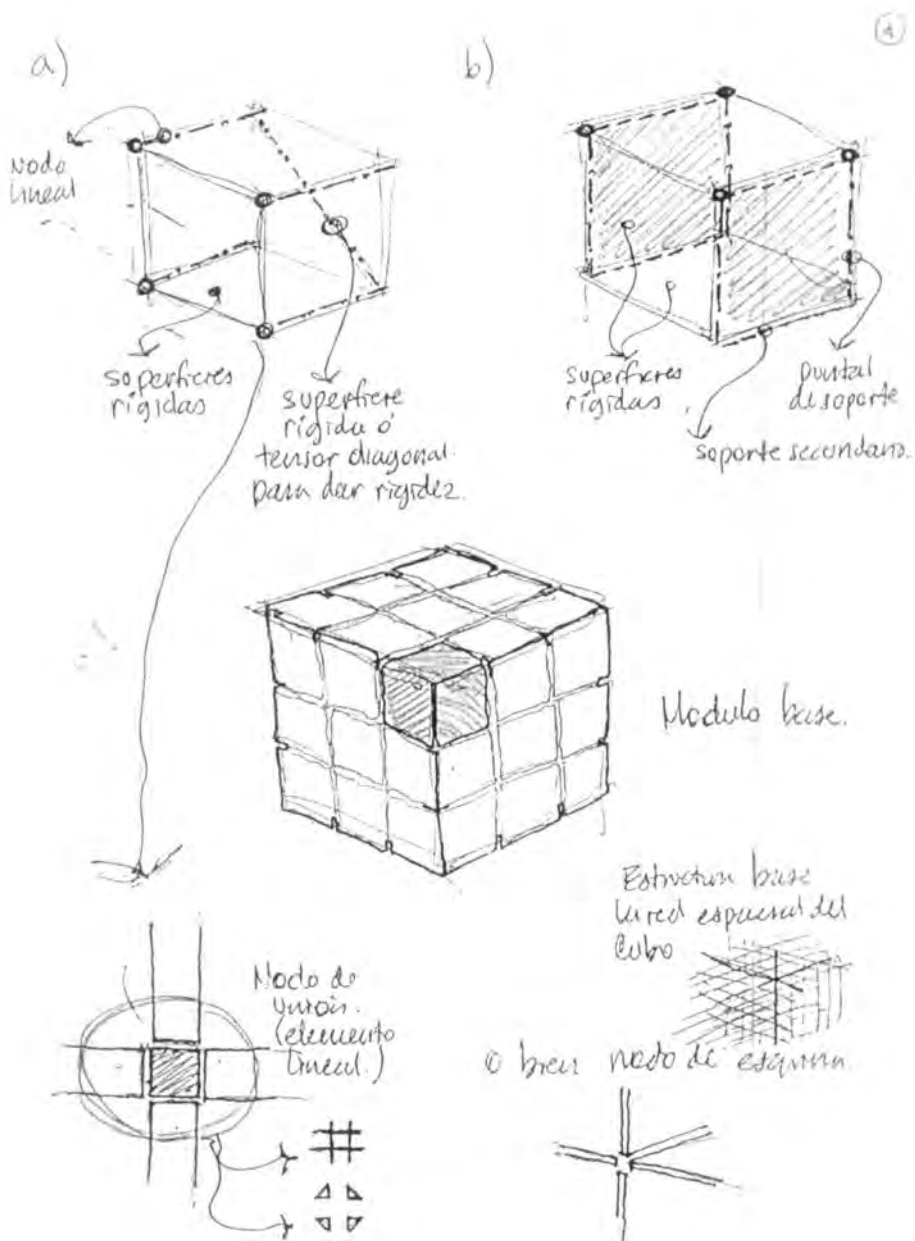 a)
b)
Nodo
lineal
superficies
rígidas
superficie
rígida o
tensor diagonal
para dar rigidez.
superficies
rígidas
puntal
de soporte
soporte secundario.
Modulo base.
Estructura base
la red espacial del
Cubo
Nodo de
unión.
(elemento
lineal.)
o bien nodo de esquina.